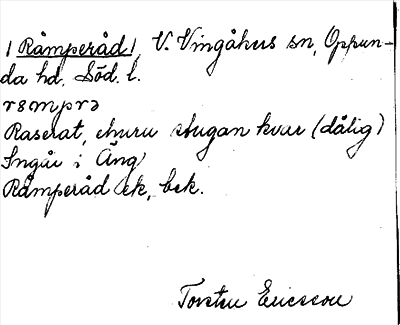 / Råmperåd /, V. Vingåkers sn, Oppun-
da hd. Söd. l.
rsmprə
Raserat, stugan kvar (dålig)
Ingår i Äng
Råmperåd ek, bek.
Torsten Ericsson